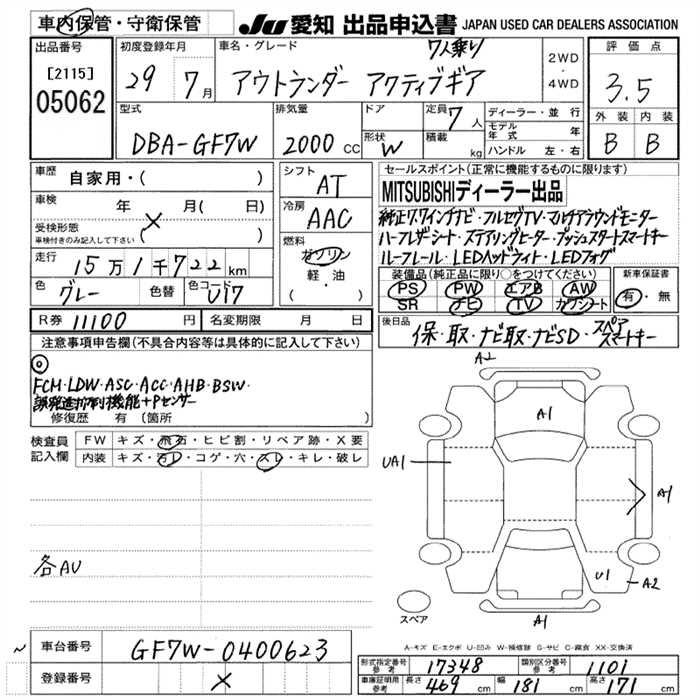 車内保管・守衛保管
JU 愛知 出品申込書 JAPAN USED CAR DEALERS ASSOCIATION
出品番号 [2115] 05062
初度登録年月 29 7月
車名・グレード 7人乗り
アウトランダー アクティブギア
2WD・4WD
評価点 3.5
外装 内装
B B
型式 DBA-GF7W
排気量 2000 CC
ドア 形状 W
定員 7人
積載 kg
ディーラー・並行
モデル年式 年
ハンドル 左・右
車歴 自家用・( )
車検 年 月( 日)
受検形態
車検付きのみ記入して下さい ( ) ×
走行 15万1千722km
色 グレー 色替 色コード U17
シフト AT
冷房 AAC
燃料 ガソリン
軽・油
( )
セールスポイント(正常に機能するものに限ります)
MITSUBISHIディーラー出品
純正SDワイドナビ・フルセグTV・マルチアラウンドモニター
ハーフレザーシート・ステアリングヒーター・プッシュスタートスマートキー
ルーフレール・LEDヘッドライト・LEDフォグ
装備品(純正品に限り○をつけてください)
PS PW エアB AW
SR ナビ TV カワシート
新車保証書 有・無
R券 11100 円
名変期限 月 日
後日品 保・取・ナビ取・ナビSD・スペアスマートキー
注意事項申告欄(不具合内容等は具体的に記入して下さい)
FCM・LDW・ASC・ACC・AHB・BSW・
誤発進抑制機能+Pセンサー
修復歴 有 (箇所 )
検査員記入欄
FW キズ・飛石・ヒビ割・リペア跡・X要
内装 キズ・汚レ・コゲ・穴・スレ・キレ・破レ
各AU
A2
A1
UA1
A1
U1
A2
A1
スペア
A-キズ E-エクボ U-凹み W-補修跡 S-サビ C-腐食 XX-交換済
車台番号 GF7W-0400623
登録番号 ×
形式指定番号 参考 17348
類別区分番号 参考 1101
車庫証明用 参考 長さ 469 cm 幅 181 cm 高さ 171 cm